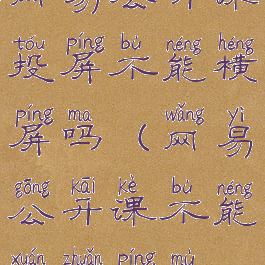 tóu píng bù néng héng
投屏不能横
píng ma wǎng yì
屏吗（网易
gōng kāi kè bù néng
公开课不能
xuán zhuǎn píng mù